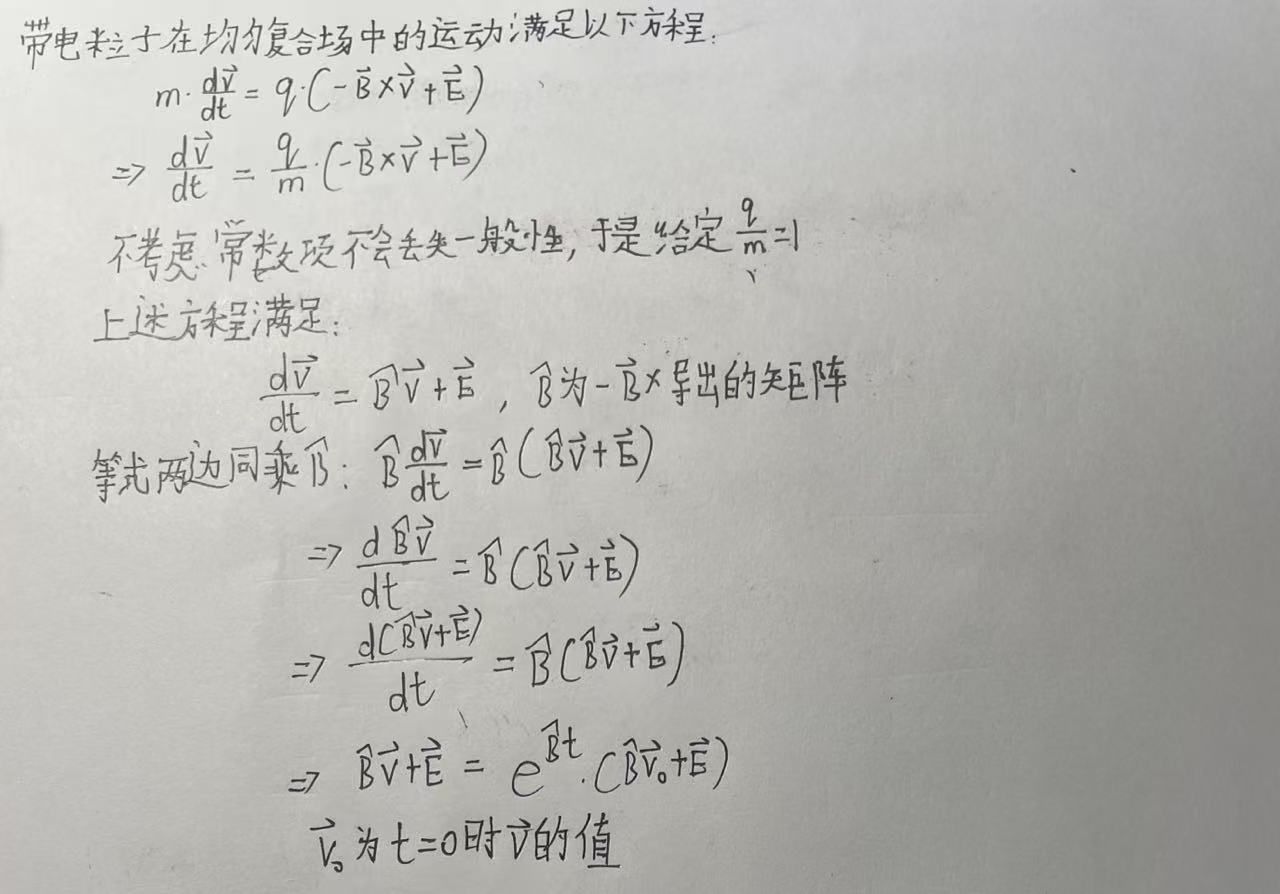 带电粒子在均匀复合场中的运动满足以下方程:
m·dv⃗/dt = q·(-B⃗×v⃗+E⃗)
=> dv⃗/dt = q/m·(-B⃗×v⃗+E⃗)
不考虑常数项不会丢失一般性,于是给定 q/m=1
上述方程满足:
dv⃗/dt = B̂v⃗+E⃗ , B̂为-B⃗×导出的矩阵
等式两边同乘B̂: B̂dv⃗/dt = B̂(B̂v⃗+E⃗)
=> dB̂v⃗/dt = B̂(B̂v⃗+E⃗)
=> d(B̂v⃗+E⃗)/dt = B̂(B̂v⃗+E⃗)
=> B̂v⃗+E⃗ = e^B̂t·(B̂v⃗₀+E⃗)
v⃗₀为t=0时v⃗的值